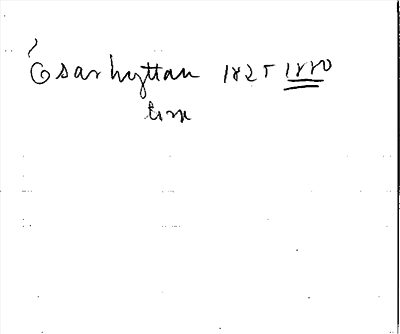 Ösarhyttan 1825 1880